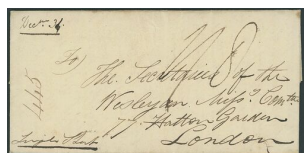 Decr. 31.
To
The Secretaries of the
Wesleyan Missy. Comtee
77 Hatton Garden
London
Single Sheet